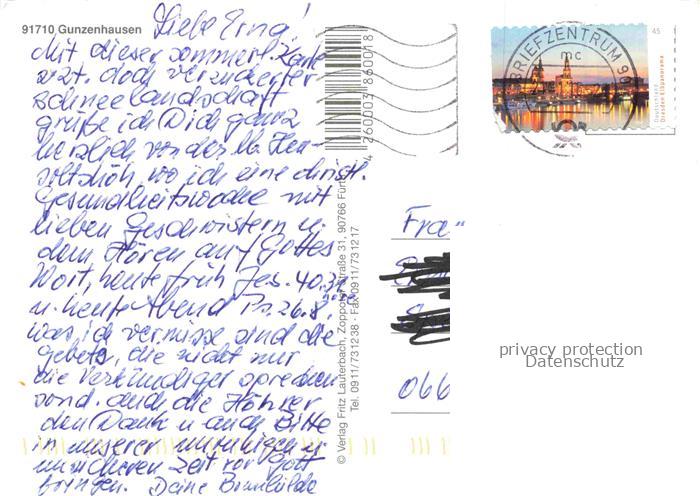 91710 Gunzenhausen
Liebe Erna!
Mit dieser sommerl. Karte
doch verzauberter
Schneelandschaft
grüße ich Dich ganz
herzlich von der lb. Hen-
soltshöh, wo ich eine christl.
Gesundheitswoche mit
lieben Geschwistern u.
dem Hören auf Gottes
Wort, heute früh Jes. 40.31
u. heute Abend Ps. 26.8,
was ich vermisse sind die
Gebete, die nicht nur
die Verkündiger sprechen
sond. auch die Hörer
den Dank u. auch Bitte
in unserer unruhigen u.
unsicheren Zeit vor Gott
bringen. Deine Brunhilde
4 260003 860018
© Verlag Fritz Lauterbach, Zoppoter Straße 31, 90766 Fürth
Tel. 0911/731238 · Fax 0911/731217
BRIEFZENTRUM 90
mc
45
Deutschland
Dresden Elbpanorama
Fra
066
privacy protection
Datenschutz